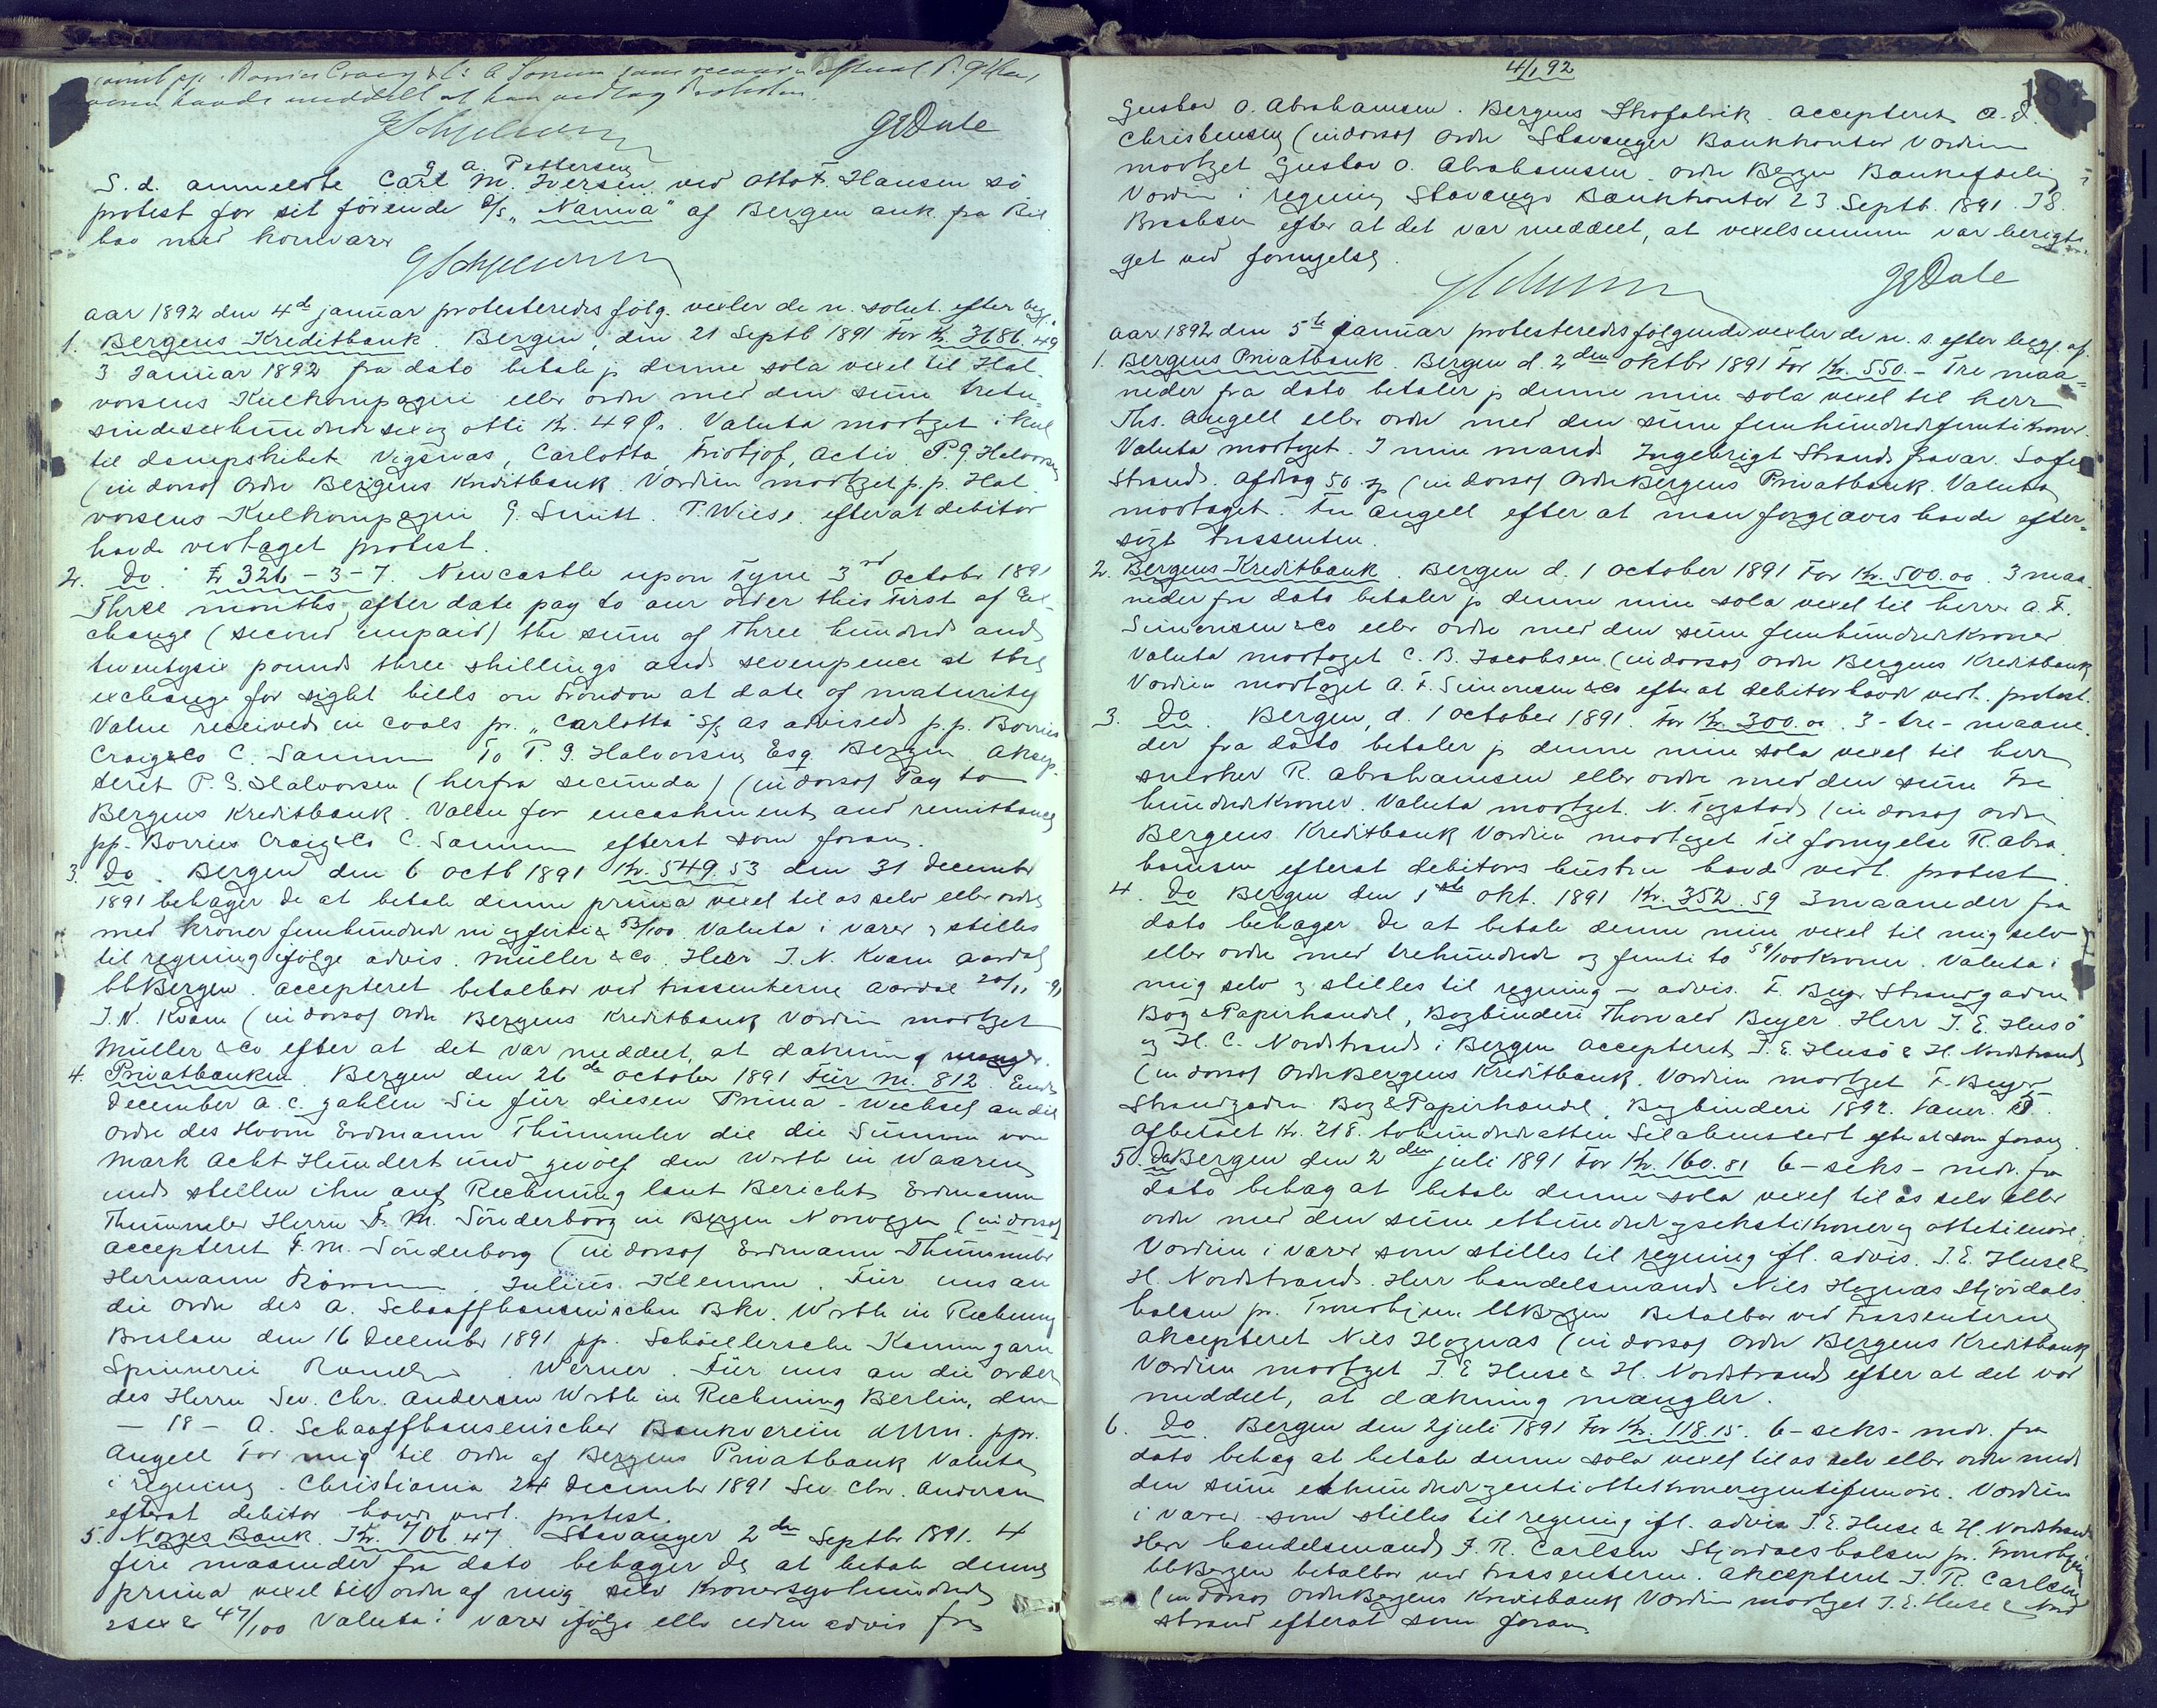 havde meddelt at han vedtog Protesten.
GDale
G. A. Pettersen
S. d. anmeldte Carl M. Iversen ved Otto F. Hansen sö
protest for sit förende S/S „Narma" af Bergen ank. fra Bil
bao med kornvarer
aar 1892 den 4de januar protesteredes fölg. vexler de n. solut. efter begj.
1. Bergens Kreditbank. Bergen, den 21 Septb 1891 For Kr. 3686.49
3 Januar 1892 fra dato betale p denne sola vexel til Hal-
vorsens Kulkompagni eller ordre med den sum tretu-
sindesexhundredesex og otti Kr. 49 Ör. Valuta modtget i kul
til dampskibet Vigsnas, Carlotta, Fridtjof, Activ. P. G. Halvorsen
(in dorso) Ordre Bergens Kreditbank. Værdien modtget p.p. Hal-
vorsens Kulkompagni G. Smitt. P. Wiese. efterat debitor
havde vedtaget protest.
2. Do. £ 326-3-7 Newcastle upon Tyne 3rd October 1891
Three months after date pay to our order this First of Ex-
change (second unpaid) the sum of three hundred and
twentysix pounds three shillings and sevenpence at the
exchange for sight bills on London at date of maturity
Value received in coals pr. „Carlotta" S/S as advised p.p. Borries
Craig & Co C. Samm To P. G. Halvorsen Esq. Bergen Aksep-
teret P. G. Halvorsen (herfra secunda) (in dorso) Pay to
Bergens Kreditbank. Value for encashment and remittance
pp. Borries Craig & Co C. Samm efterat som foran.
3. Do. Bergen den 6 octb 1891 Kr. 549.53 den 31 December
1891 behager De at betale denne prima vexel til os selv eller ordre
med kroner femhundrede ni og firti & 53/100 Valuta i varer & stilles
til regning ifölge advis. Müller & Co. Herr J. N. Kvam Aardal
bbBergen. accepteret betalbar ved trassenterne Aardal 20/11 91
J. N. Kvam (in dorso) Ordre Bergens Kreditbank Værdien modtget
Müller & Co efter at det var meddelt, at dækning mangler.
4. Privatbanken. Bergen den 26de October 1891 Für M. 812. Ende
December a. c. zahlen Sie für diesen Prima-Wechsel an die
Ordre des Herrn Erdmann Thümmler die die Summe von
Mark Acht Hundert und zwölf den Werth in Waaren
und stellen ihn auf Rechnung laut Bericht Erdmann
Thümmler Herrn F. M. Sönderborg in Bergen Norwegen (in dorso)
accepteret F. M. Sönderborg (in dorso) Erdmann Thümmler
Hermann. Julius Klemm. Für uns an
die Ordre des A. Schaaffhausenschen Bkv. Werth in Rechnung
Breslau den 16 December 1891 pp. Schoellersche Kammgarn
Spinnerei. Werner. Für uns an die Order
des Herrn Sev. Chr. Andersen Werth in Rechnung Berlin, den
- 18 - A. Schaaffhausenscher Bankverein ppr.
Angell For mig til Ordre af Bergens Privatbank Valuta
i regning. Christiania 24 December 1891 Sev. Chr. Andersen
efterat debitor havde vedt. protest.
5. Norges Bank. Kr. 706.47. Stavanger 2den Septbr 1891. 4
fire maaneder fra dato behager De at betale denne
prima vexel til ordre af mig selv Kroner syvhundrede
& sex & 47/100 Valuta i varer ifölge eller uden advis fra
4/1 92
187
Gustav O. Abrahamsen. Bergens Skofabrik. accepteret A. D.
Christensen (in dorso) Ordre Stavanger Bankkontor Værdien
modtget Gustav O. Abrahamsen. Ordre Bergen Bankafdeling
Værdi i regning Stavanger Bankkontor 23 Septb. 1891. I. S.
efter at det var meddelt, at vexelsummen var berigti-
get ved fornyelse.
GDale
aar 1892 den 5te januar protesteredes fölgende vexler de n. s. efter begj. af
1. Bergens Privatbank. Bergen d. 2den Oktbr 1891 For Kr. 550.- Tre maa-
neder fra dato betaler p denne min sola vexel til herr
Ths. Angell eller ordre med den sum femhundredefemti kroner.
Valuta modtget. I min mands Ingebrigt Strands fravær. Sofie
Strand. Afdrag 50. (in dorso) Ordre Bergens Privatbank. Valuta
modtaget. Ths Angell efter at man forgjæves havde efter-
sögt trassenten.
2. Bergens Kreditbank. Bergen d. 1 October 1891 For Kr. 500.00. 3 maa-
neder fra dato betaler p denne min sola vexel til herrer A. F.
Simonsen & Co eller ordre med den sum femhundrede kroner
Valuta modtaget C. B. Jacobsen (in dorso) Ordre Bergens Kreditbank
Værdien modtaget A. F. Simonsen & Co efter at debitor havde vedt. protest.
3. Do. Bergen, d. 1 October 1891. For Kr. 300.00. 3-tre- maane-
der fra dato betaler p denne min sola vexel til herr
snedker R. Abrahamsen eller ordre med den sum Tre
hundrede kroner. Valuta modtget. N. Tegstad (in dorso) Ordre
Bergens Kreditbank Værdien modtaget til fornyelse R. Abra-
hamsen efterat debitors hustru havde vedt. protest.
4. Do Bergen den 1ste okt. 1891 Kr. 352.59 3 maaneder fra
dato behager De at betale denne min vexel til mig selv
eller ordre med trehundrede og femti to 59/100 kroner. Valuta i
mig selv & stilles til regning - advis. F. Beyer Strandgaden
Bog & Papirhandel, Bogbinderi Thorvald Beyer. Herr J. E. Husö
og H. C. Nordstrand i Bergen accepteret J. E. Husö & H. Nordstrand
(in dorso) Ordre Bergens Kreditbank. Værdien modtget F. Beyer
Strandgaden Bog & Papirhandel, Bogbinderi 1892. Januar. 5.
Afbetalt Kr. 218. tohundrede atten efter at som foran.
5. Do Bergen den 2den juli 1891 For Kr. 160.81 6-seks- mdr. fra
dato behag at betale denne sola vexel til os selv eller
ordre med den sum ethundrede og seksti kroner og ottetien öre.
Værdien i varer som stilles til regning ifl. advis. J. E. Huse &
H. Nordstrand. Herr handelsmand Nils Hognas Stjördals-
halsen pr. Trondhjem bbBergen Betalbar ved Trassenterne
akcepteret Nils Hognas (in dorso) Ordre Bergens Kreditbank
Værdien modtget J. E. Huse & H. Nordstrand efter at det var
meddelt, at dækning mangler.
6. Do. Bergen den 2 juli 1891 For Kr. 118.15. 6-seks- mdr. fra
dato behag at betale denne sola vexel til os selv eller ordre med
den sum ethundrede Værdien
i varer som stilles til regning ifl. advis J. E. Huse & H. Nordstrand
Herr handelsmand J. R. Carlsen Stjordalshalsen pr. Trondhjem
bbBergen betalbar ved Trassenterne. akcepteret J. R. Carlsen
(in dorso) Ordre Bergens Kreditbank Værdien modtget J. E. Huse & Nord
strand efterat som foran.